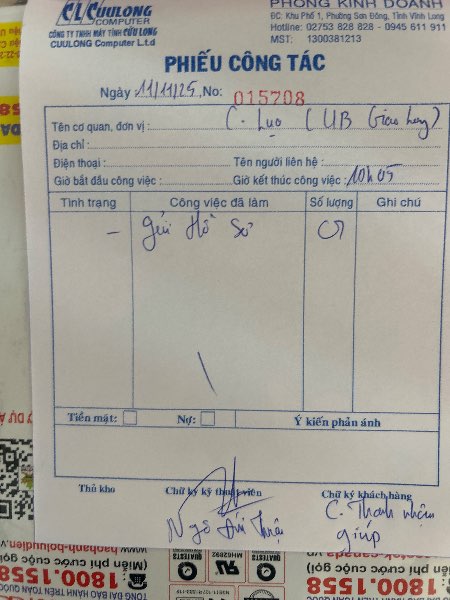 PHÒNG KINH DOANH
CL CUULONG
COMPUTER
CÔNG TY TNHH MÁY TÍNH CỬU LONG
CUULONG Computer L.t.d
ĐC: Khu Phố 1, Phường Sơn Đông, Tỉnh Vĩnh Long
Hotline: 02753 828 828 - 0945 611 911
MST: 1300381213
PHIẾU CÔNG TÁC
Ngày 11/11/25 No: 015708
Tên cơ quan, đơn vị : C. Lụa (UB Giao Long)
Địa chỉ :
Điện thoại : Tên người liên hệ :
Giờ bắt đầu công việc : Giờ kết thúc công việc : 10h05
Tình trạng Công việc đã làm Số lượng Ghi chú
- gửi Hồ Sơ
Tiền mặt: Nợ: Ý kiến phản ánh
Thủ kho Chữ ký kỹ thuật viên Chữ ký khách hàng
Ngô C. Thanh nhận
giúp
www.haohanh-boluudien.com
(Miễn phí cước gọi)
1800.1558